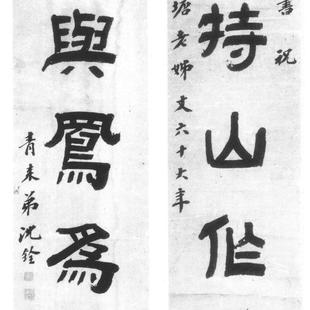 書祝
持山作
塘老姊丈六十大年
與鳳爲
青来弟沈銓